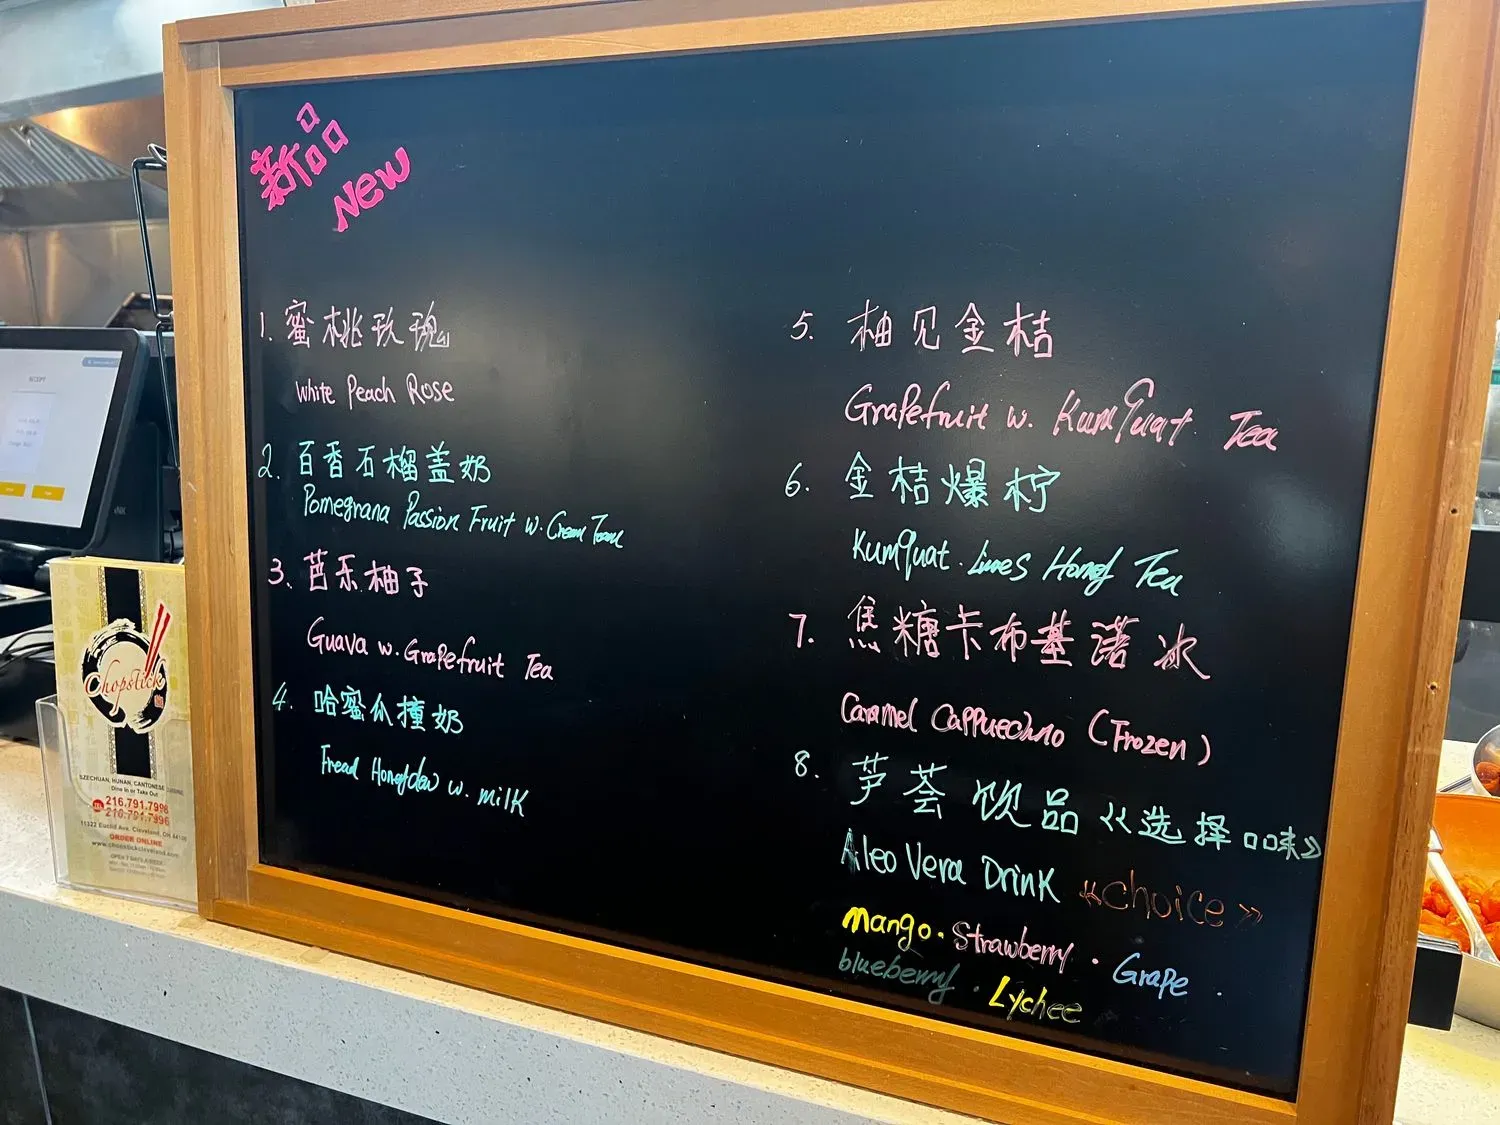 新品
New
1. 蜜桃玫瑰
White Peach Rose
2. 百香石榴盖奶
Pomegrana Passion Fruit w. Cream
3. 芭乐柚子
Guava w. Grapefruit Tea
4. 哈蜜瓜撞奶
w. milk
5. 柚见金桔
Grapefruit w. KumQuat Tea
6. 金桔爆柠
KumQuat. Limes Tea
7. 焦糖卡布基诺冰
Caramel (Frozen)
8. 芦荟饮品《选择口味》
Aleo Vera Drink 《Choice》
Mango. Strawberry. Grape.
blueberry. Lychee
Chopstick
SZECHUAN, HUNAN, CANTONESE CUISINE
Dine In or Take Out
216.791.7996
216.791.7996
11322 Euclid Ave. Cleveland, OH 44106
ORDER ONLINE
www.chopstickcleveland.com
OPEN 7 DAYS A WEEK
RECEIPT